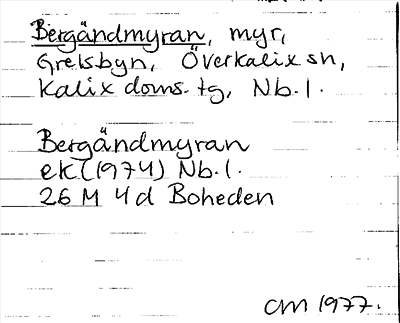 Bergändmyran, myr,
Grelsbyn, Överkalix sn,
Kalix doms. tg, Nb. l.
Bergändmyran
ek (1974) Nb. l.
26 M 4 d Boheden
CM 1977.